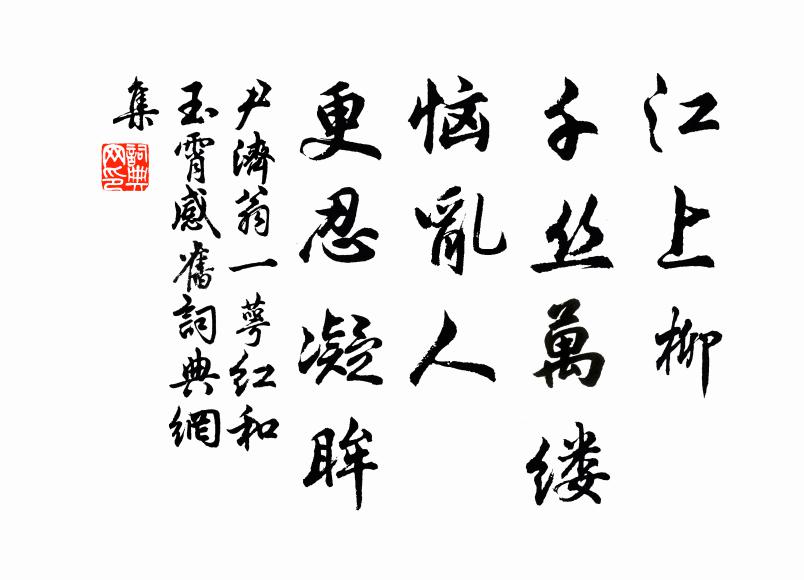 江上柳
千丝萬缕
恼亂人
更忍凝眸
尹濟翁一萼红和
玉霄感舊詞典網
集
詞典
网印